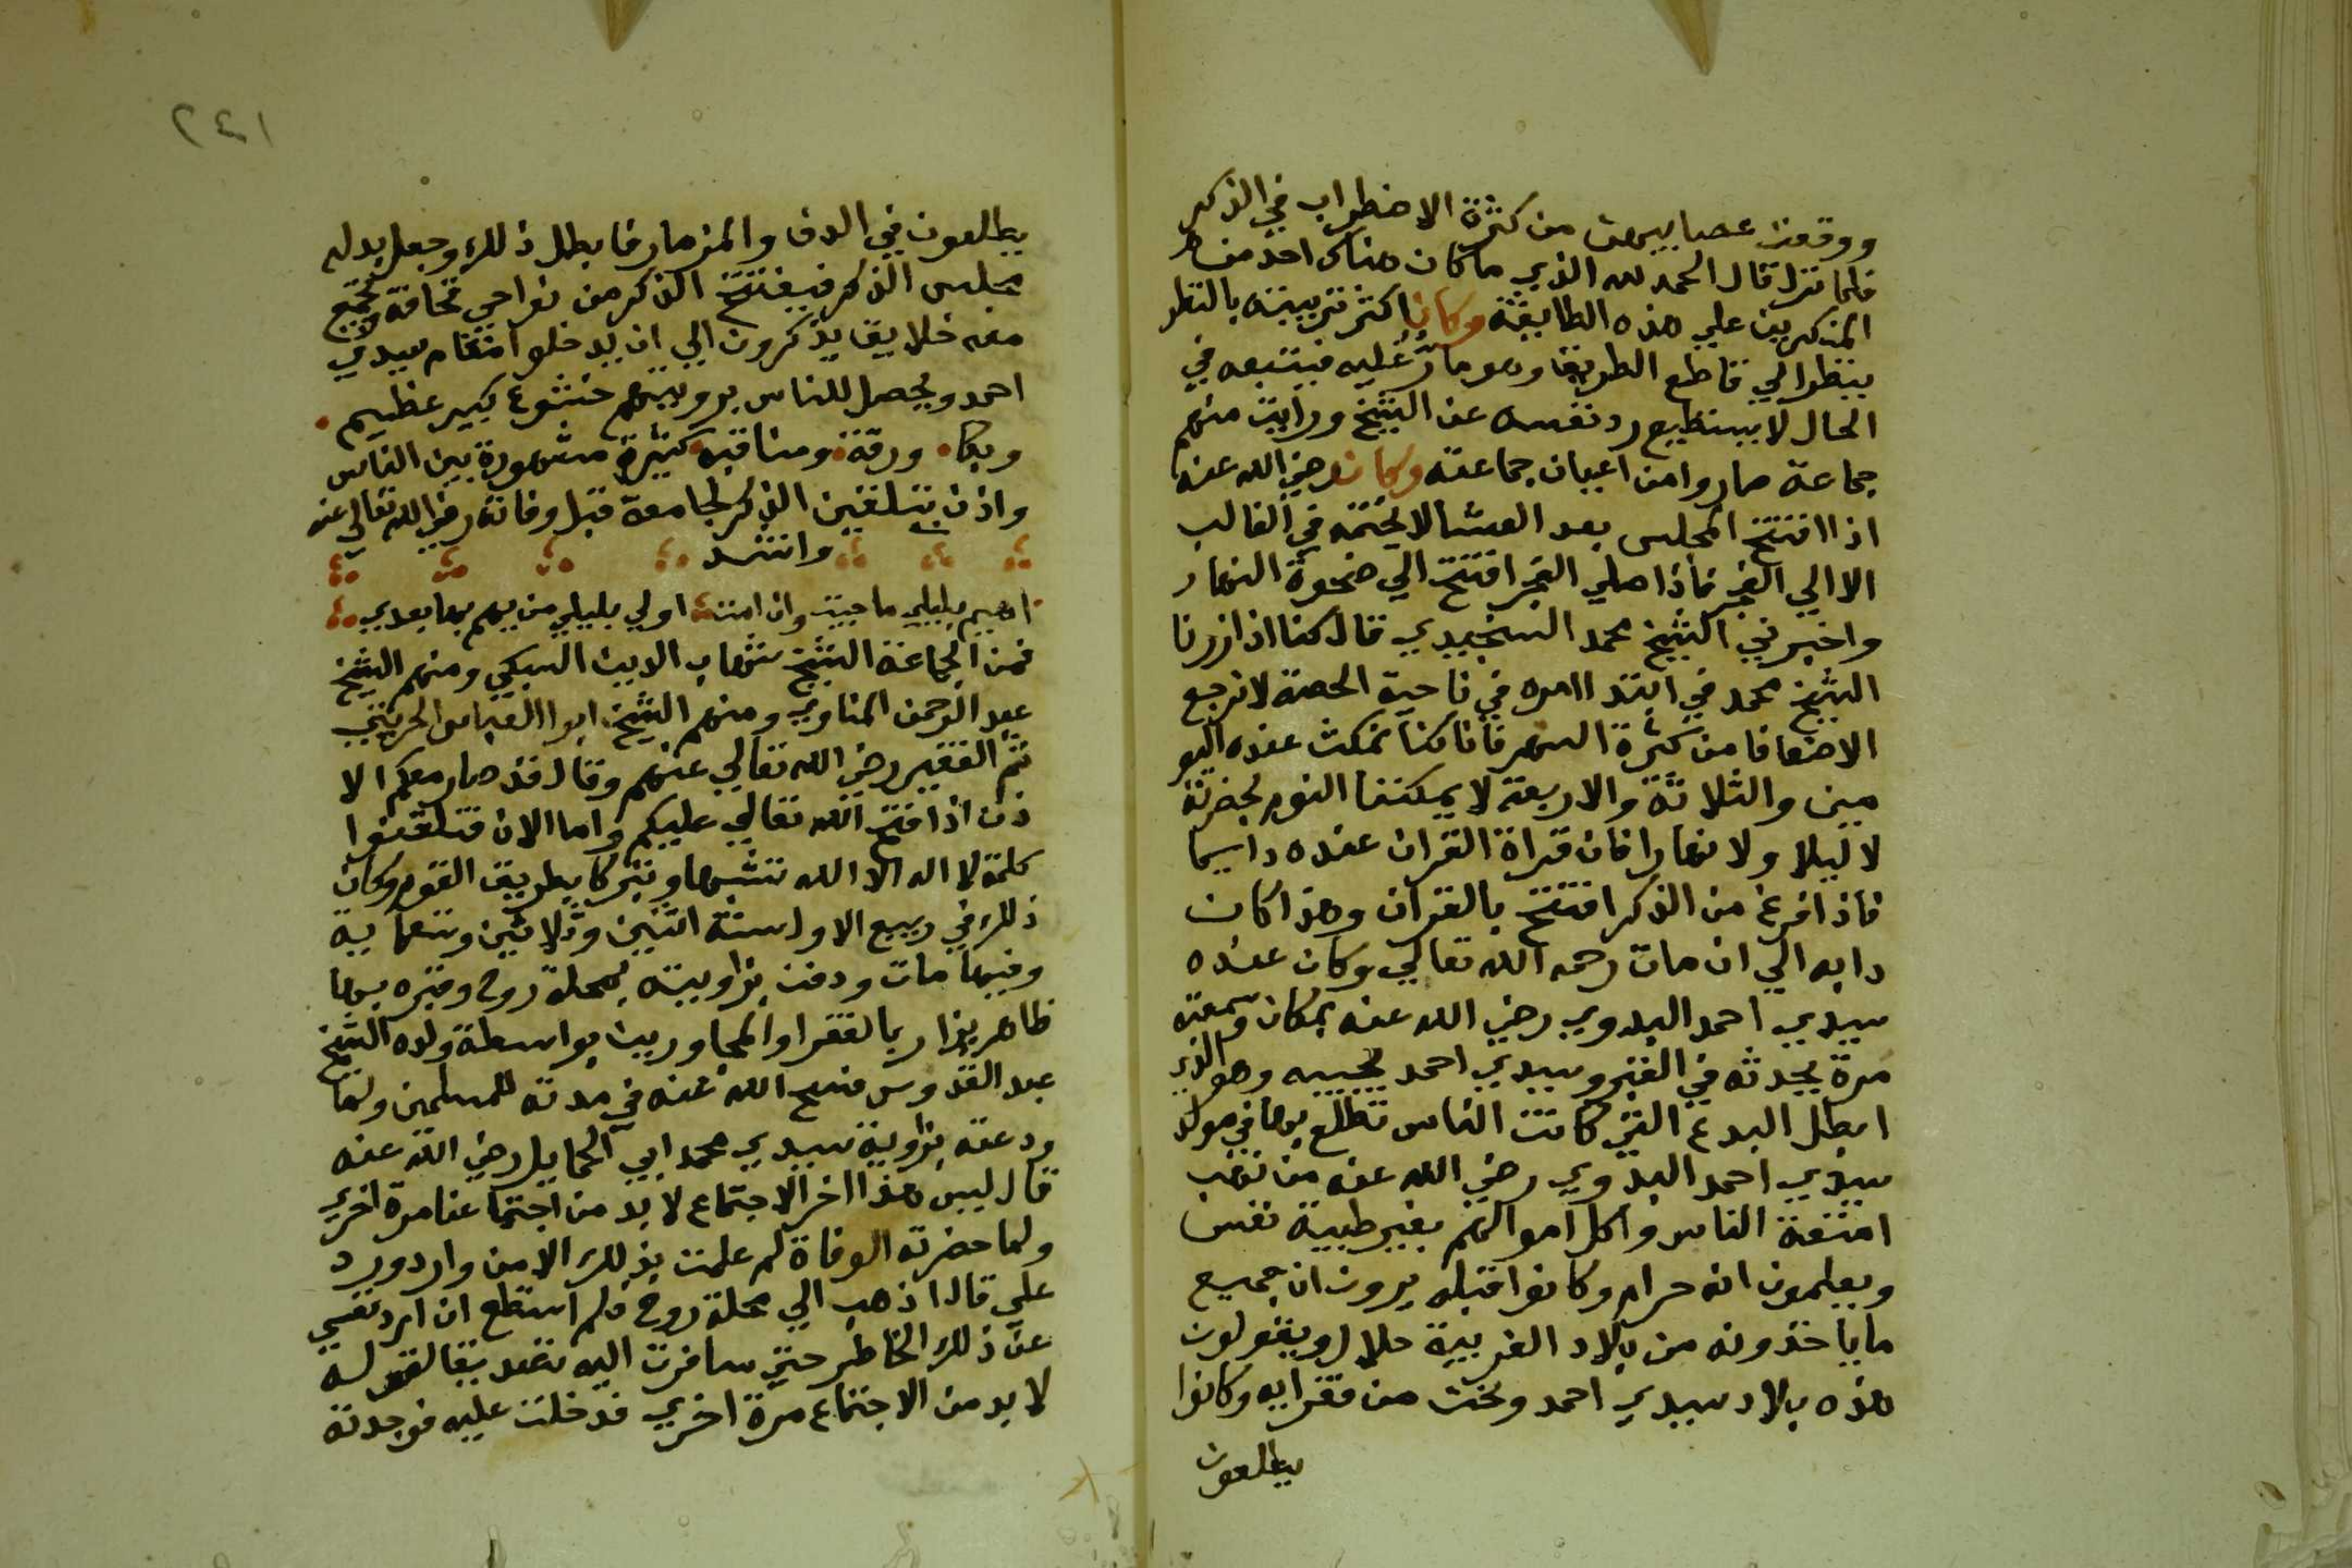 ووقعت عصابيهن من كثرة الاضطراب في الذكر
فلما نزل قال الحمد لله الذي ما كان هناك احد من
المنكرين علي هذه الطايفة وكان اكثر تربيته بالنظر
ينظر الي قاطع الطريق وهو مار عليه فيتبعه في
الحال لا يستطيع رد نفسه عن الشيخ ورايت منهم
جماعة صاروا من اعيان جماعته وكان رضي الله عنه
اذا افتتح المجلس بعد العشا لا يختمه في الغالب
الا الي الفجر فاذا صلي الفجر افتتح الي ضحوة النهار
واخبرني الشيخ محمد السنجيدي قال كنا اذا زرنا
الشيخ محمد في ابتدا امره في ناحية الحصة لا نرجع
الا ضعافا من كثرة السهر فانا كنا نمكث عنده اليو
مين والثلاثة والاربعة لا يمكننا النوم بحضرته
لا ليلا ولا نهارا فان قراة القران عنده دايما
فاذا فرغ من الذكر افتتح بالقران وهذا كان
دابه الي ان مات رحمه الله تعالي وكان عنده
سيدي احمد البدوي رضي الله عنه بمكان وسمعته
مرة يحدثه في القبر وسيدي احمد يجيبه وهو الذي
ابطل البدع التي كانت الناس تطلع بها في مولد
سيدي احمد البدوي رضي الله عنه من نهب
امتعة الناس واكل اموالهم بغير طيبة نفس
ويعلمون انه حرام وكانوا قبله يرون ان جميع
ما ياخذونه من بلاد الغربية حلال ويقولون
هذه بلاد سيدي احمد ونحن من فقرايه وكانوا
يطلعون
٢٤١
يطلعون في الدف والمزمار فابطل ذلك وجعل بدله
مجلس الذكر فيفتتح الذكر من نواحي قحافة وتجتمع
معه خلايق يذكرون الي ان يدخلوا مقام سيدي
احمد ويحصل للناس برويتهم خشوع كبير عظيم
وبكا ورقة ومناقبه كثيرة مشهورة بين الناس
واذن بتلقين الذكر لجامعة قبل وفاته رضي الله تعالي عنه
وانشد
اهيم بليلي ما حييت وان امت اولي بليلي من يهم بها بعدي
فمن الجماعة الشيخ شهاب الدين السبكي ومنهم الشيخ
عبد الرحمن المناوي ومنهم الشيخ ابوا العباس الحريثي
ثم الفقير رضي الله تعالي عنهم وقال قد صار معكم الا
ذن اذا فتح الله تعالي عليكم واما الان فتلقنوا
كلمة لا اله الا الله تشبها وتبركا بطريق القوم وكان
ذلك في ربيع الاول سنة اثنين وثلاثين وتسعماية
وفيها مات ودفن بزاويته بمحلة روح وقبره بها
ظاهر يزار بالفقرا والمجاورين بواسطة ولده الشيخ
عبد القدوس فسح الله عنه في مدته للمسلمين ولما
ودعته بزاوية سيدي محمد ابي الحمايل رضي الله عنه
قال ليس هذا اخر الاجتماع لا بد من اجتماعنا مرة اخري
ولما حضرته الوفاة لم علمت بذلك الا من وارد ورد
علي قال اذهب الي محلة روح فلم استطع ان ارد نفسي
عن ذلك الخاطر حتي سافرت اليه تصديقا لقوله
لا بد من الاجتماع مرة اخري فدخلت عليه فوجدته